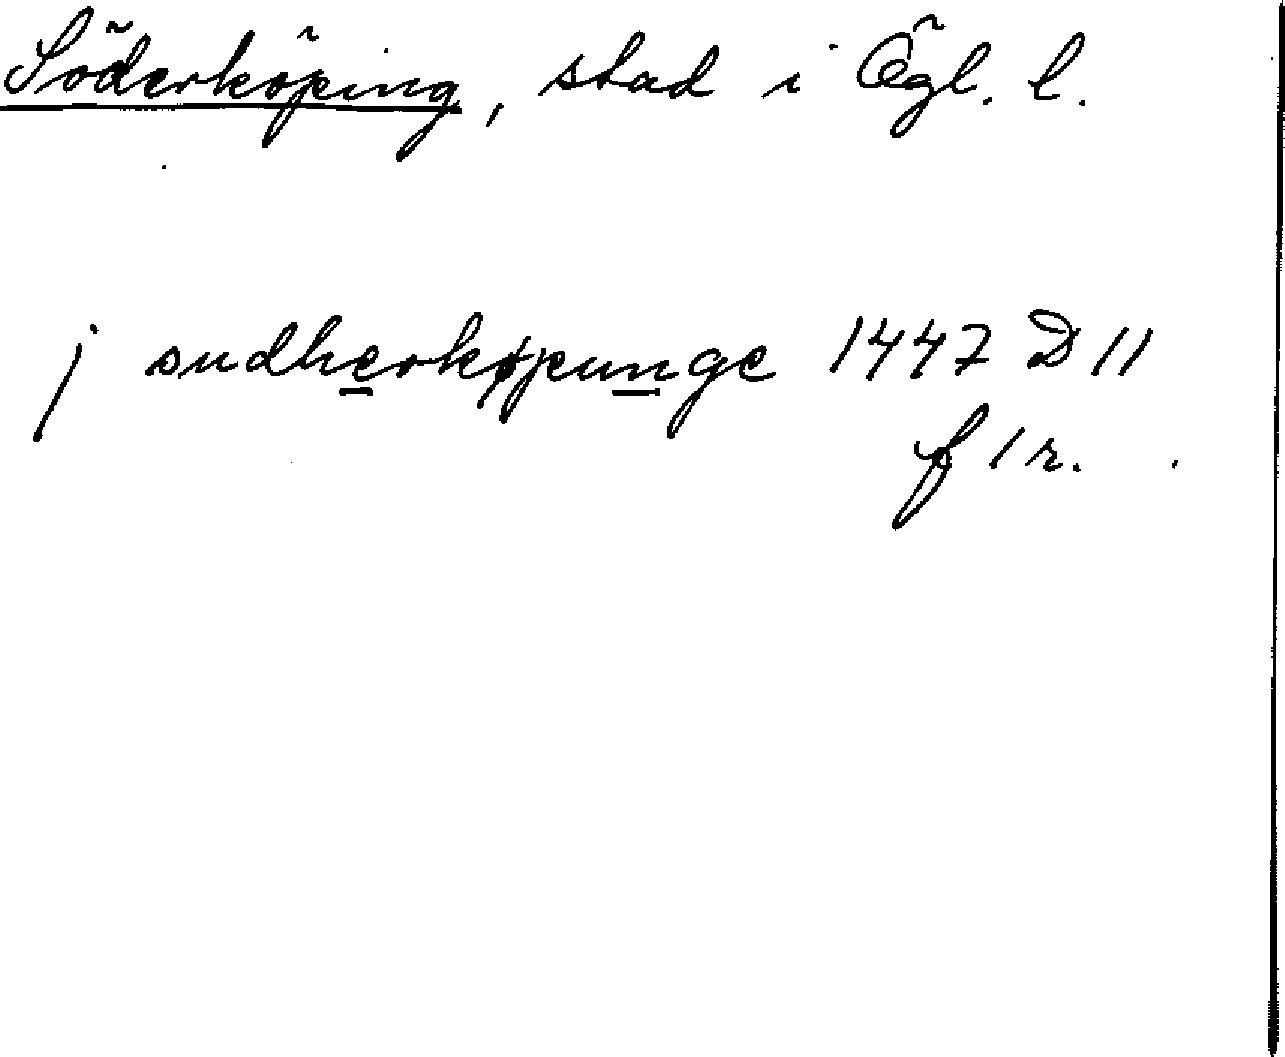 Söderköping, stad i Ögl. l.
j sudherkøpunge 1447 D 11
f 1 r.